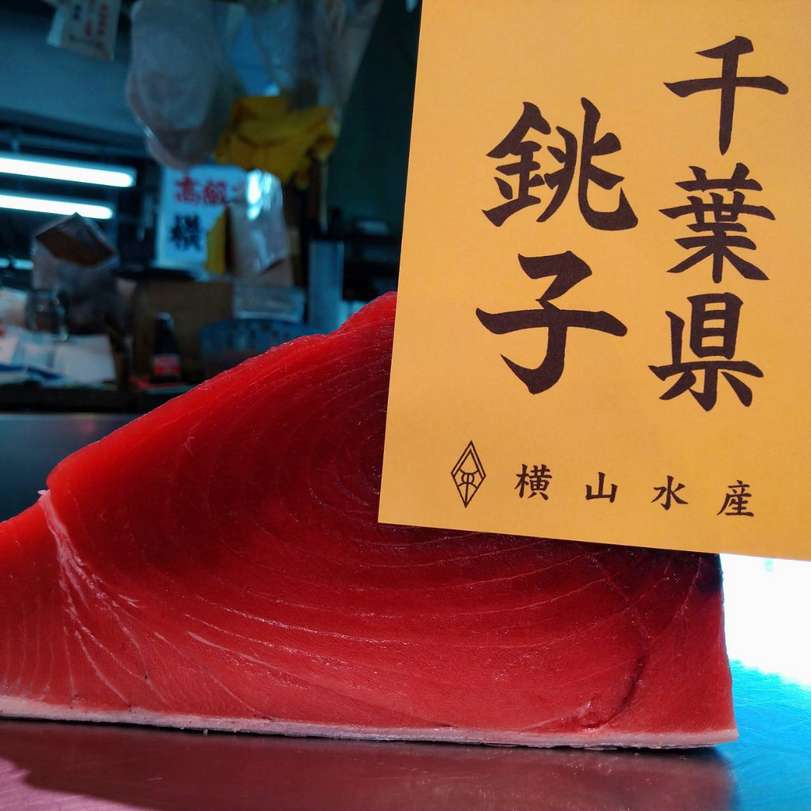 千葉県
銚子
横山水産
高級
横